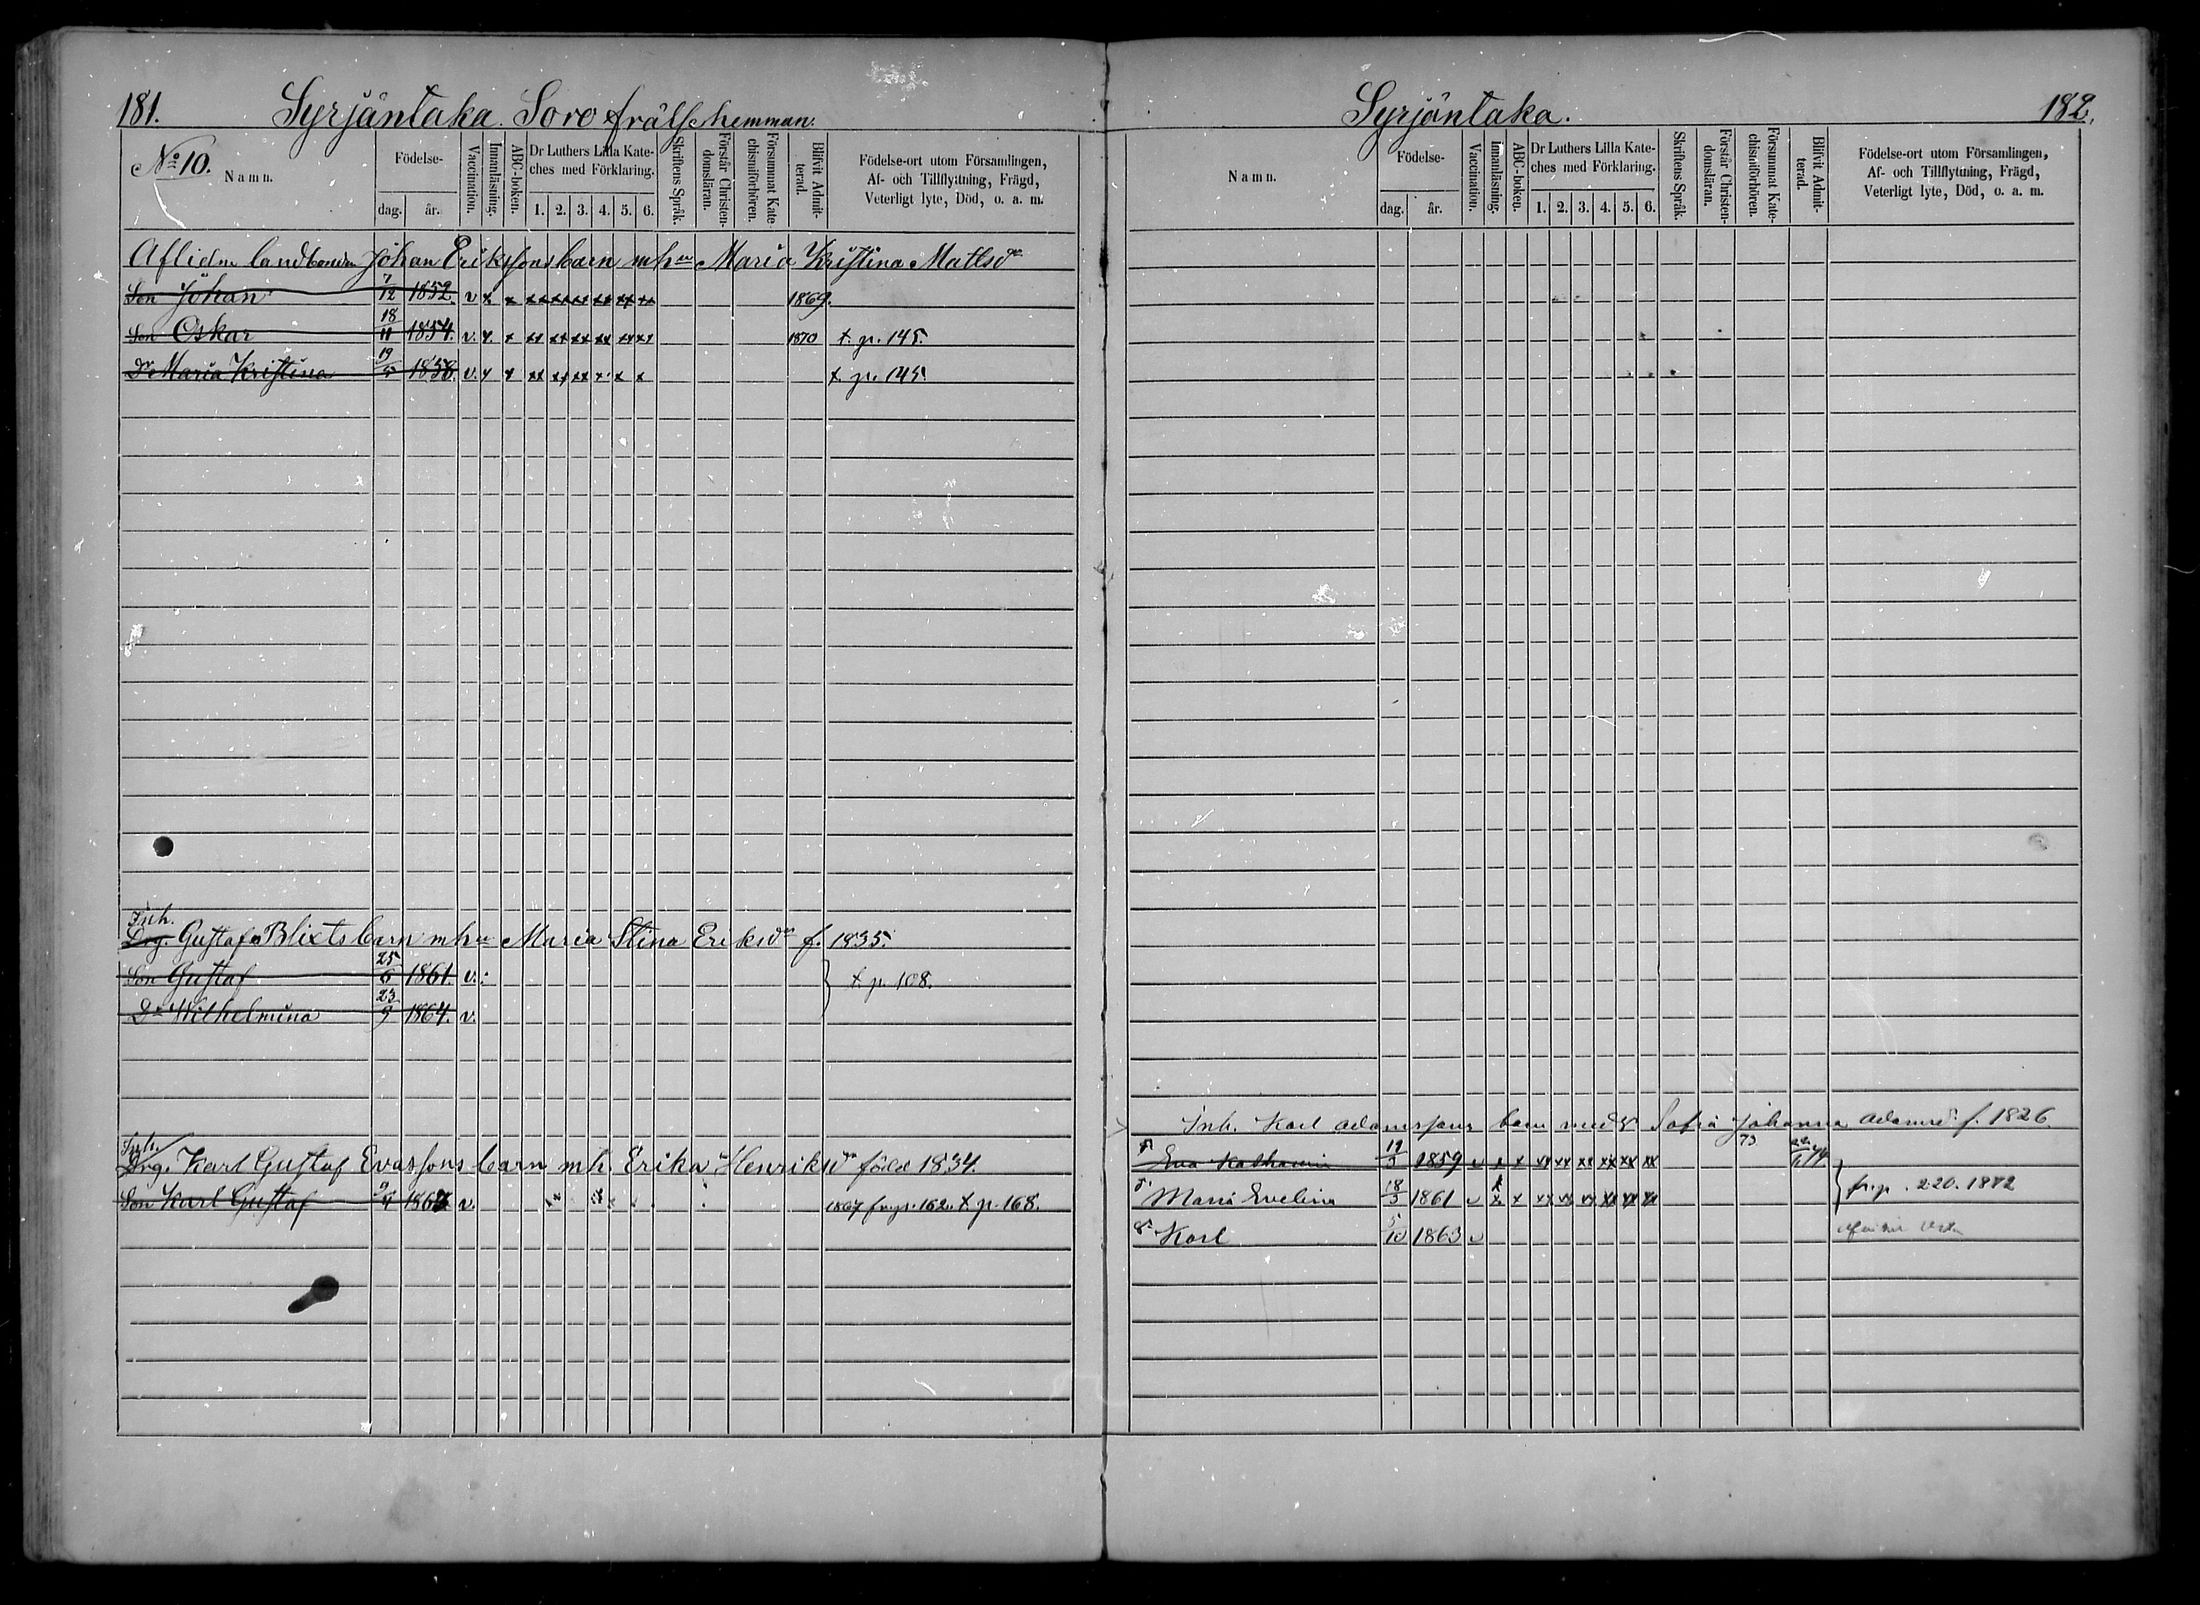 181.
Syrjäntaka. Soro frälsehemman.
No 10.
Namn.
Födelse-
dag. år.
Vaccination.
Innanläsning.
ABC-boken.
Dr Luthers Lilla Kate-
ches med Förklaring.
1. 2. 3. 4. 5. 6.
Skriftens Språk.
Förstår Christen-
domsläran.
Försummat Kate-
chismiförhören.
Blifvit Admit-
terad.
Födelse-ort utom Församlingen,
Af- och Tillflyttning, Frägd,
Veterligt lyte, Död, o. a. m.
Aflidne landbonden Johan Erikssons barn m hu Maria Kristina Matlsdr
Son Johan 7/12 1852. v x x xx xx xx xx xx xx 1869.
Son Oskar 18/11 1854. v. x x xx xx xx xx xx xx 1870 t. p. 145.
Dr Maria Kristina 19/5 1858. v. x x xx xx xx x x x t. p. 145
Inh.
Drg. Gustaf Blixts barn m hu Maria Stina Eriksdr f. 1835.
Son Gustaf 25/6 1861. v. t p. 108.
Dr Wilhelmina 23/5 1864. v.
Inh.
Drg. Karl Gustaf Evassons barn m h. Erika Henriksdr född 1834.
Son Karl Gustaf 2/4 186 v. 1867 fr. p. 162. t. p. 168.
Syrjäntaka.
182.
Namn.
Födelse-
dag. år.
Vaccination.
Innanläsning.
ABC-boken.
Dr Luthers Lilla Kate-
ches med Förklaring.
1. 2. 3. 4. 5. 6.
Skriftens Språk.
Förstår Christen-
domsläran.
Försummat Kate-
chismiförhören.
Blifvit Admit-
terad.
Födelse-ort utom Församlingen,
Af- och Tillflyttning, Frägd,
Veterligt lyte, Död, o. a. m.
Inh. Karl Adamssons barn med Sofia Johanna Adamsdr f. 1826
dr Eva Katharina 19/3 1859 v x x xx xx xx xx xx xx 73
dr Maria Evelina 18/3 1861 v x x xx xx xx xx xx xx fr. p. 220. 1872
Karl 5/10 1863 v